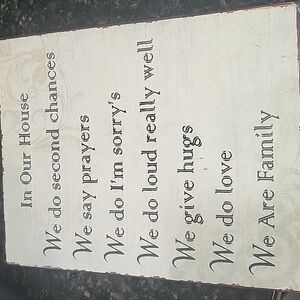 In Our House
We do second chances
We say prayers
We do I'm sorry's
We do loud really well
We give hugs
We do love
We Are Family